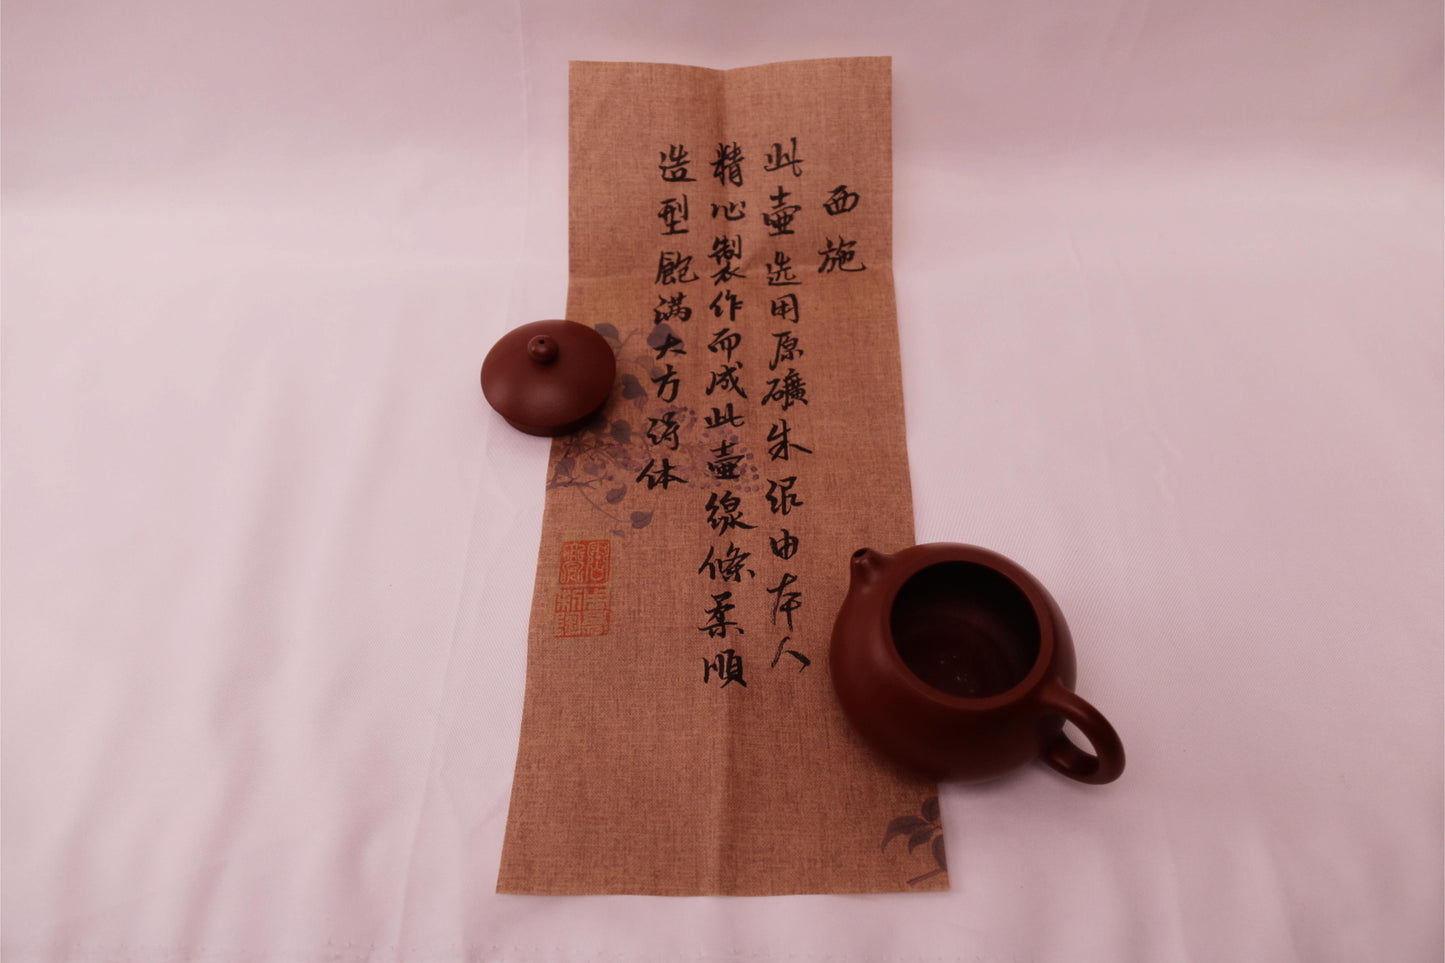 西施
此壷选用原礦朱泥由本人
精心製作而成此壷線條柔順
造型飽满大方得体